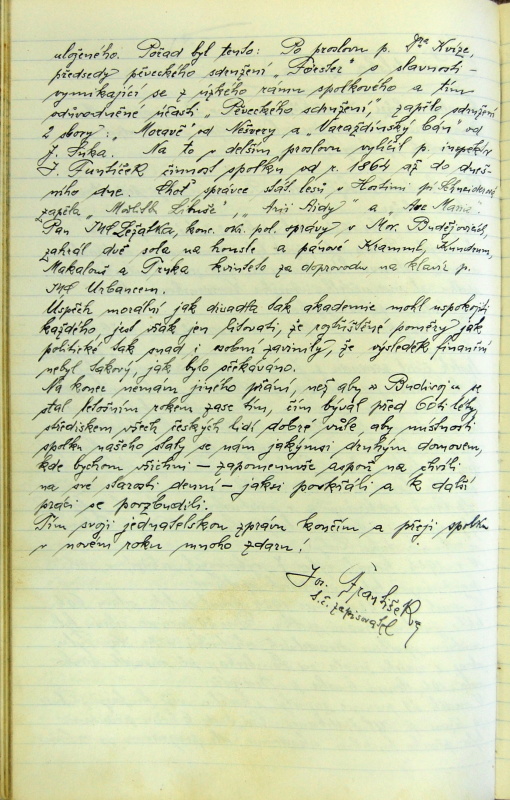 uloženého. Pořad byl tento: Po proslovu p. Dra Kvíze,
předsedy pěveckého sdružení „Foerster" o slavnosti –
vymikající se z úzkého rámu spolkového a tím
odůvodněné účasti „Pěveckého sdružení", zapělo sdružení
2 sbory: „Moravě" od Nešvery a „Varaždinský bán" od
J. Suka. Na to v delším proslovu vylíčil p. inspektor
J. Furiček činnost spolku od r. 1864 až do dneš-
ního dne. Choť správce stát. lesů v Hostíni pí
zapěla „Modlitb Libuše", „Arii Aidy" a „Ave Maria".
Pan Ležatka, konc. ok. pol. správy v Mor. Budějovicích,
zahrál dvě sola na housle a pánové Kramml, Kundrum,
Makaloui a Tryka kvinteto za doprovodu na klavír p.
Urbancem.
Úspěch morální jak divadla tak akademie mohl uspokojiti
každého, jest však jen litovati, že roztříštěné poměry jak
politické tak snad i osobní zavinily, že výsledek finanční
nebyl takový, jak bylo očekáváno.
Na konec nemám jiného přání, než aby se Budivoj se
stal letošním rokem zase tím, čím býval před 60ti léty,
střediskem všech českých lidí dobré vůle, aby místnosti
spolku našeho staly se nám jakýmsi druhým domovem,
kde bychom všichni – zapomenuvše aspoň na chvíli
na své starosti denní – jaksi pookřáli a k další
práci se povzbudili.
Tím svoji jednatelskou zprávu končím a přeji spolku
v novém roku mnoho zdaru!
Jos. Františe
t. č. zapisovatel